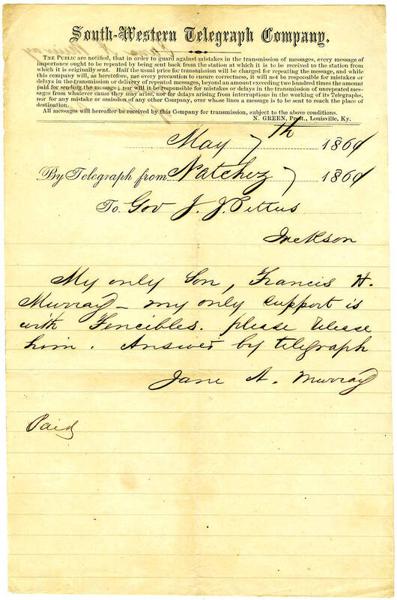 South-Western Telegraph Company.
The Public are notified, that in order to guard against mistakes in the transmission of messages, every message of
importance ought to be repeated by being sent back from the station at which it is to be received to the station from
which it is originally sent. Half the usual price for transmission will be charged for repeating the message, and while
this company will, as heretofore, use every precaution to ensure correctness, it will not be responsible for mistakes or
delays in the transmission or delivery of repeated messages, beyond an amount exceeding two hundred times the amount
paid for sending the message; nor will it be responsible for mistakes or delays in the transmission of unrepeated mes-
sages from whatever cause they may arise, nor for delays arising from interruptions in the working of its Telegraphs,
nor for any mistake or omission of any other Company, over whose lines a message is to be sent to reach the place of
destination.
All messages will hereafter be received by this Company for transmission, subject to the above conditions.
N. GREEN, Prest., Louisville, Ky.
May 7th 1861
By Telegraph from Natchez 7 1861
To Gov J. J. Pettus
Jackson
My only Son, Francis H.
Murray - my only support is
with Fencibles. please release
him. Answer by telegraph
Jane A. Murray
Paid